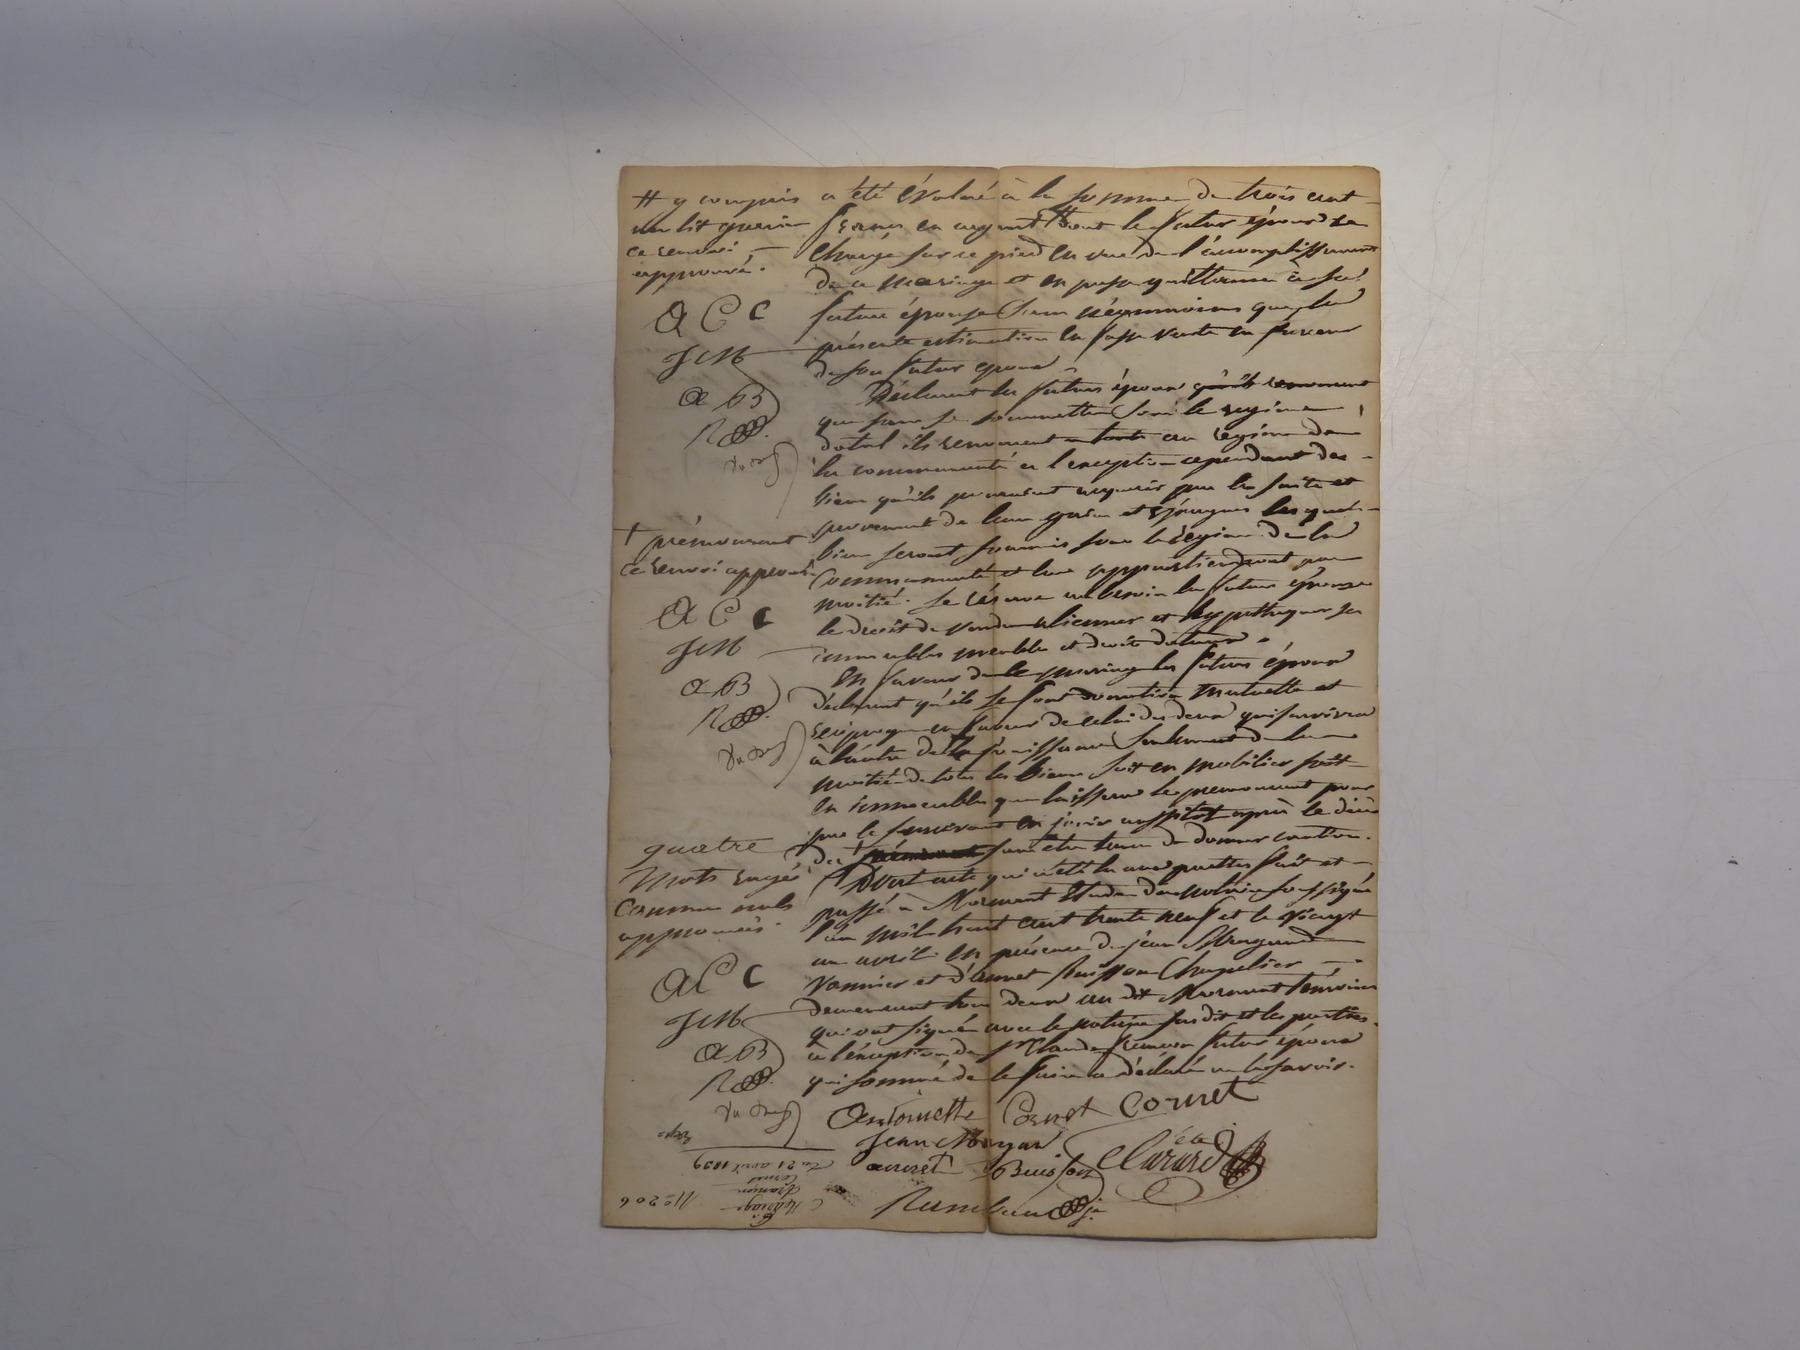 # y compris
un lit garni
ce renvoi
approuvé.
A C C
J M
a B
R
a été évalué à la somme de trois cent
francs en argent # dont le futur époux se
charge sur ce pied en vue de l'accomplissement
de ce mariage et en passe quittance à sa
future épouse sans néanmoins que la
présente estimation en fasse vente en faveur
de son futur epoux
Déclarent les futurs époux qu'ils renoncent
que sans se soumettre sous le regime
dotal ils renoncent au régime de
la communauté à l'exception cependant des
biens qu'ils pourraient acquerir par la suite et
provenant de leurs gains et épargnes lesquels
biens seront soumis sous le régime de la
Communauté et leur appartiendront par
moitié. Se réserve au besoin la future épouse
le droit de vendre aliener et hypothequer ses
immeubles meubles et droits dotaux.
En faveur de le mariage les futurs époux
déclarent qu'ils se font donation mutuelle et
reciproque en faveur de celui des deux qui survivra
à l'autre de la jouissance seulement de la
moitié de tous les biens soit en mobilier soit
en immeubles que laissera le premourant pour
par le survivant en jouir aussitot après le décès
du † sans etre tenu de donner caution.
† prémourant
ce renvoi approuvé
A C C
J M
a B
R
quatre
mots rayés
comme nuls
approuvés.
A C C
J M
a B
R
Dont acte qui a été lu aux parties fait et
passé à Mornant Etude du notaire soussigné
l'an mil huit cent trente neuf et le vingt
un avril en présence de jean
Vannier et d'annet Buisson Chapelier
demeurant tous deux au dit Mornant témoins
qui ont signé avec le notaire susdit et les parties
à l'exception de Sr Claude futur époux
qui sommé de le faire a déclaré ne le savoir.
Antoinette Cornet Cornet
Jean
annet Buisson
Expé
Du 21 avril 1839
Cornet
Mariage
N° 206